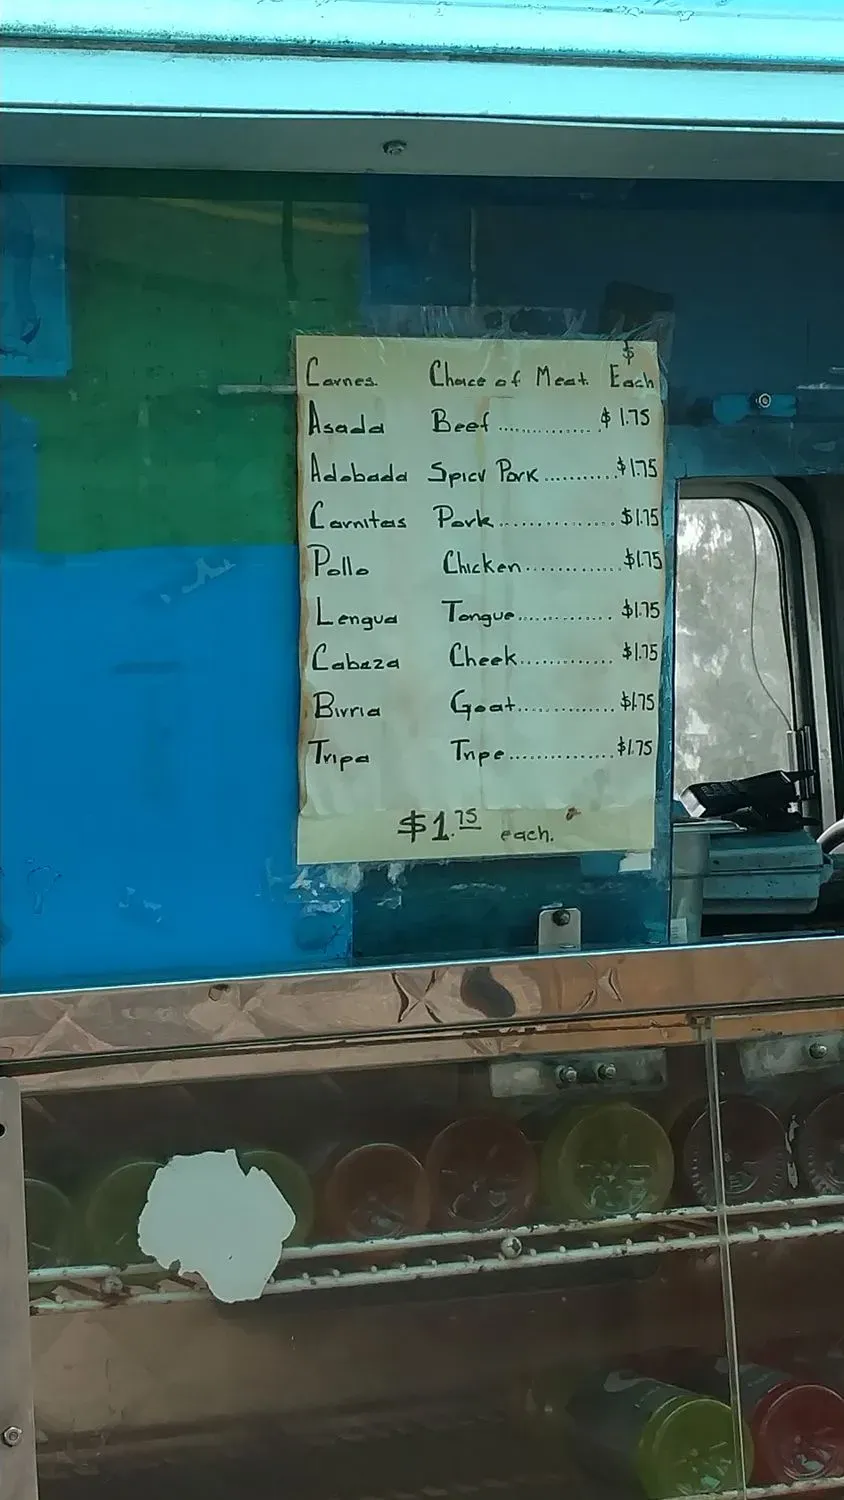 $
Carnes. Choice of Meat. Each
Asada Beef ............. $ 1.75
Adobada Spicy Pork .......... $1.75
Carnitas Pork ............... $1.75
Pollo Chicken ............. $1.75
Lengua Tongue ............. $1.75
Cabaza Cheek ............. $1.75
Birria Goat ............... $1.75
Tripa Tripe ................ $1.75
$1.75 each.